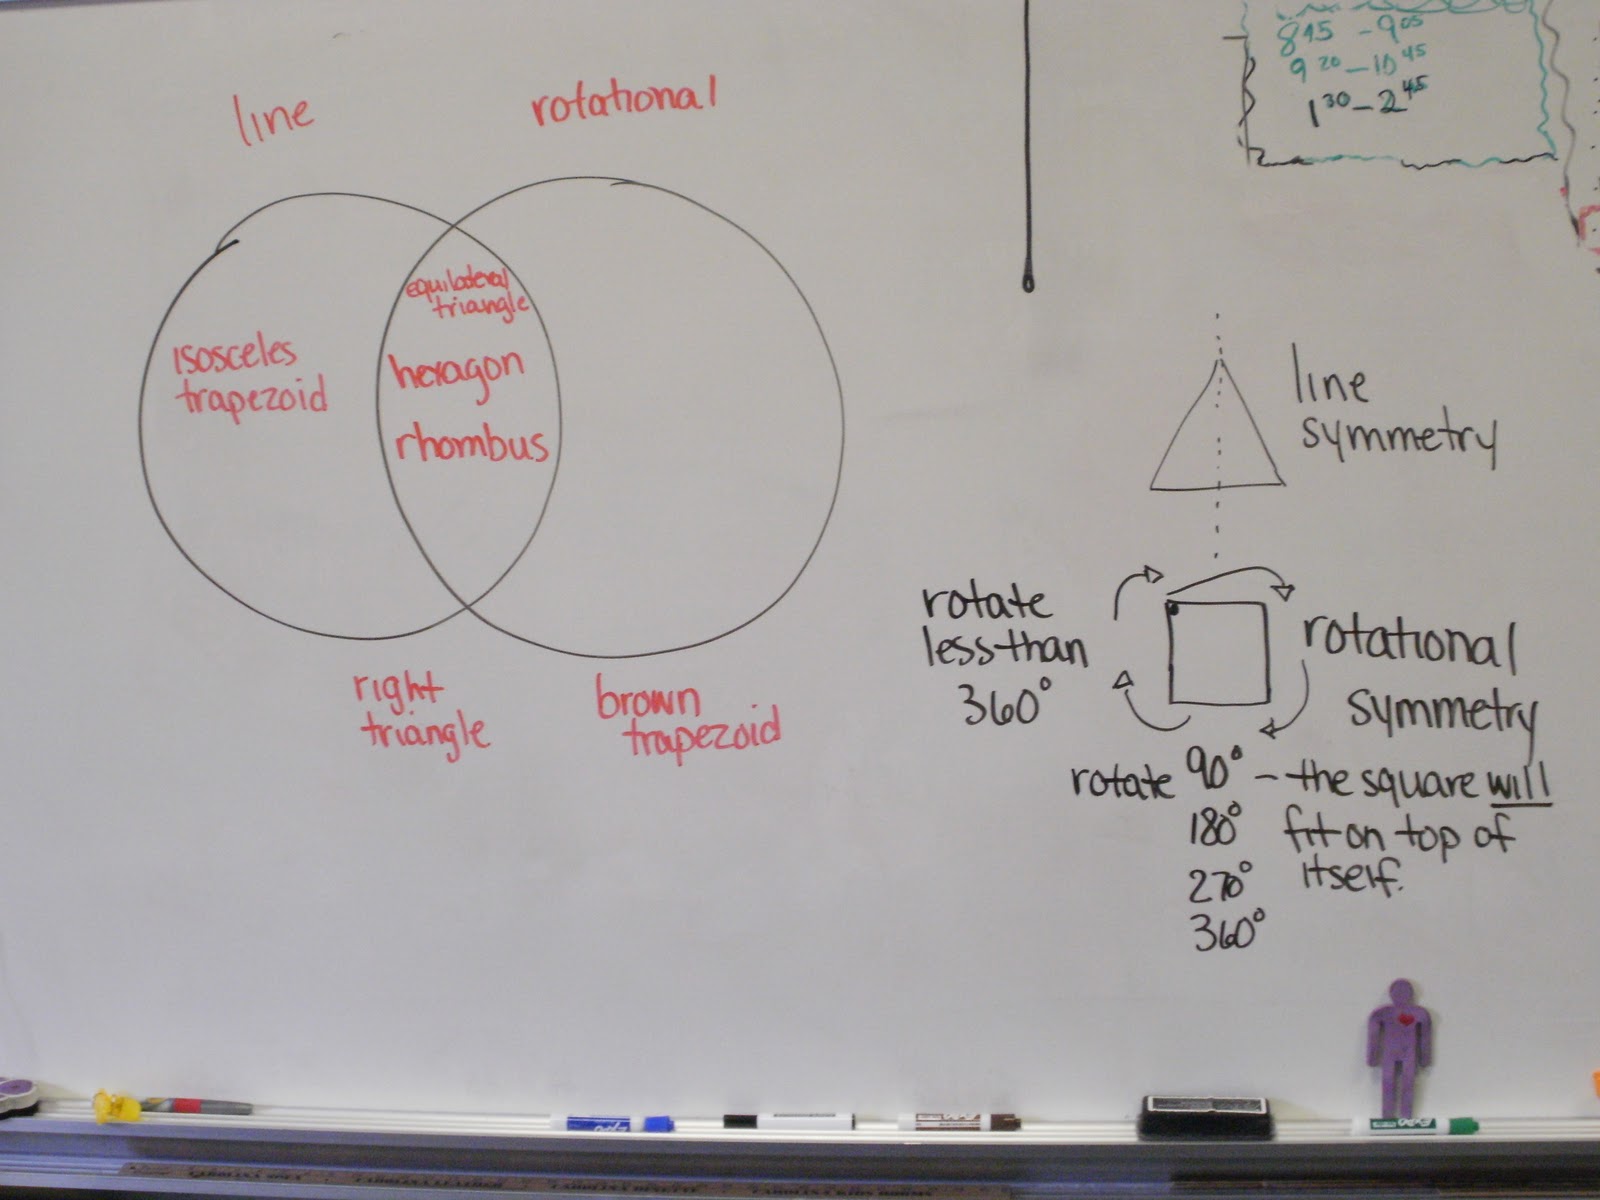 line
rotational
equilateral
triangle
hexagon
rhombus
isosceles
trapezoid
right
triangle
brown
trapezoid
8 45 - 9 05
9 20 - 10 45
1 30 - 2 45
line
symmetry
rotate
less than
360°
rotational
symmetry
rotate 90° - the square will
180° fit on top of
270° itself.
360°
EXPO